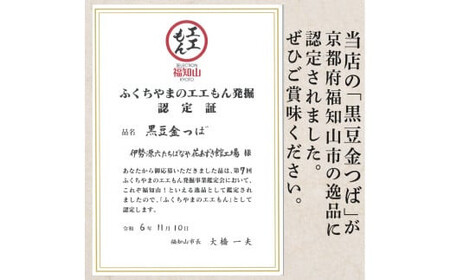 エエもん
SELECTION
福知山
KYOTO
ふくちやまのエエもん発掘
認定証
品名 黒豆金つば
伊勢源六たちばなや花あずき館工場 様
あなたから御応募いただきました品は、第9回
ふくちやまのエエもん発掘事業鑑定会において、
これぞ福知山!といえる逸品として鑑定され
ましたので、「ふくちやまのエエもん」として
認定します。
令和 6年 11月 10日
福知山市長 大橋一夫
当店の「黒豆金つば」が
京都府福知山市の逸品に
認定されました。
ぜひご賞味ください。